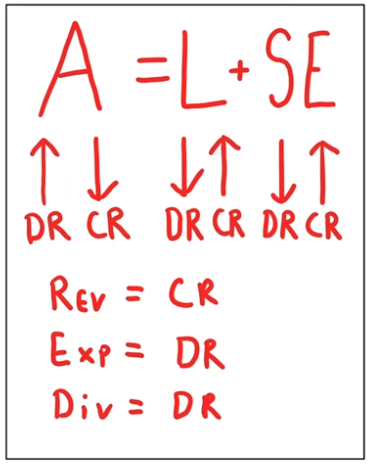 A = L + SE
↑ ↓ ↓ ↑ ↓ ↑
DR CR DR CR DR CR
REV = CR
Exp = DR
Div = DR